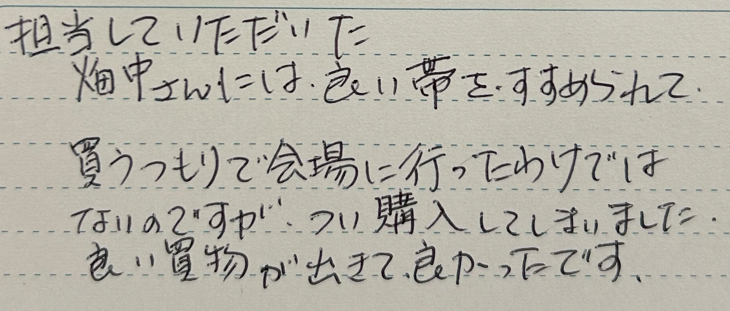 担当していただいた
畑中さんには、良い帯を、すすめられて、
買うつもりで会場に行ったわけでは
ないのですが、つい購入してしまいました。
良い買物が出きて、良かったです。